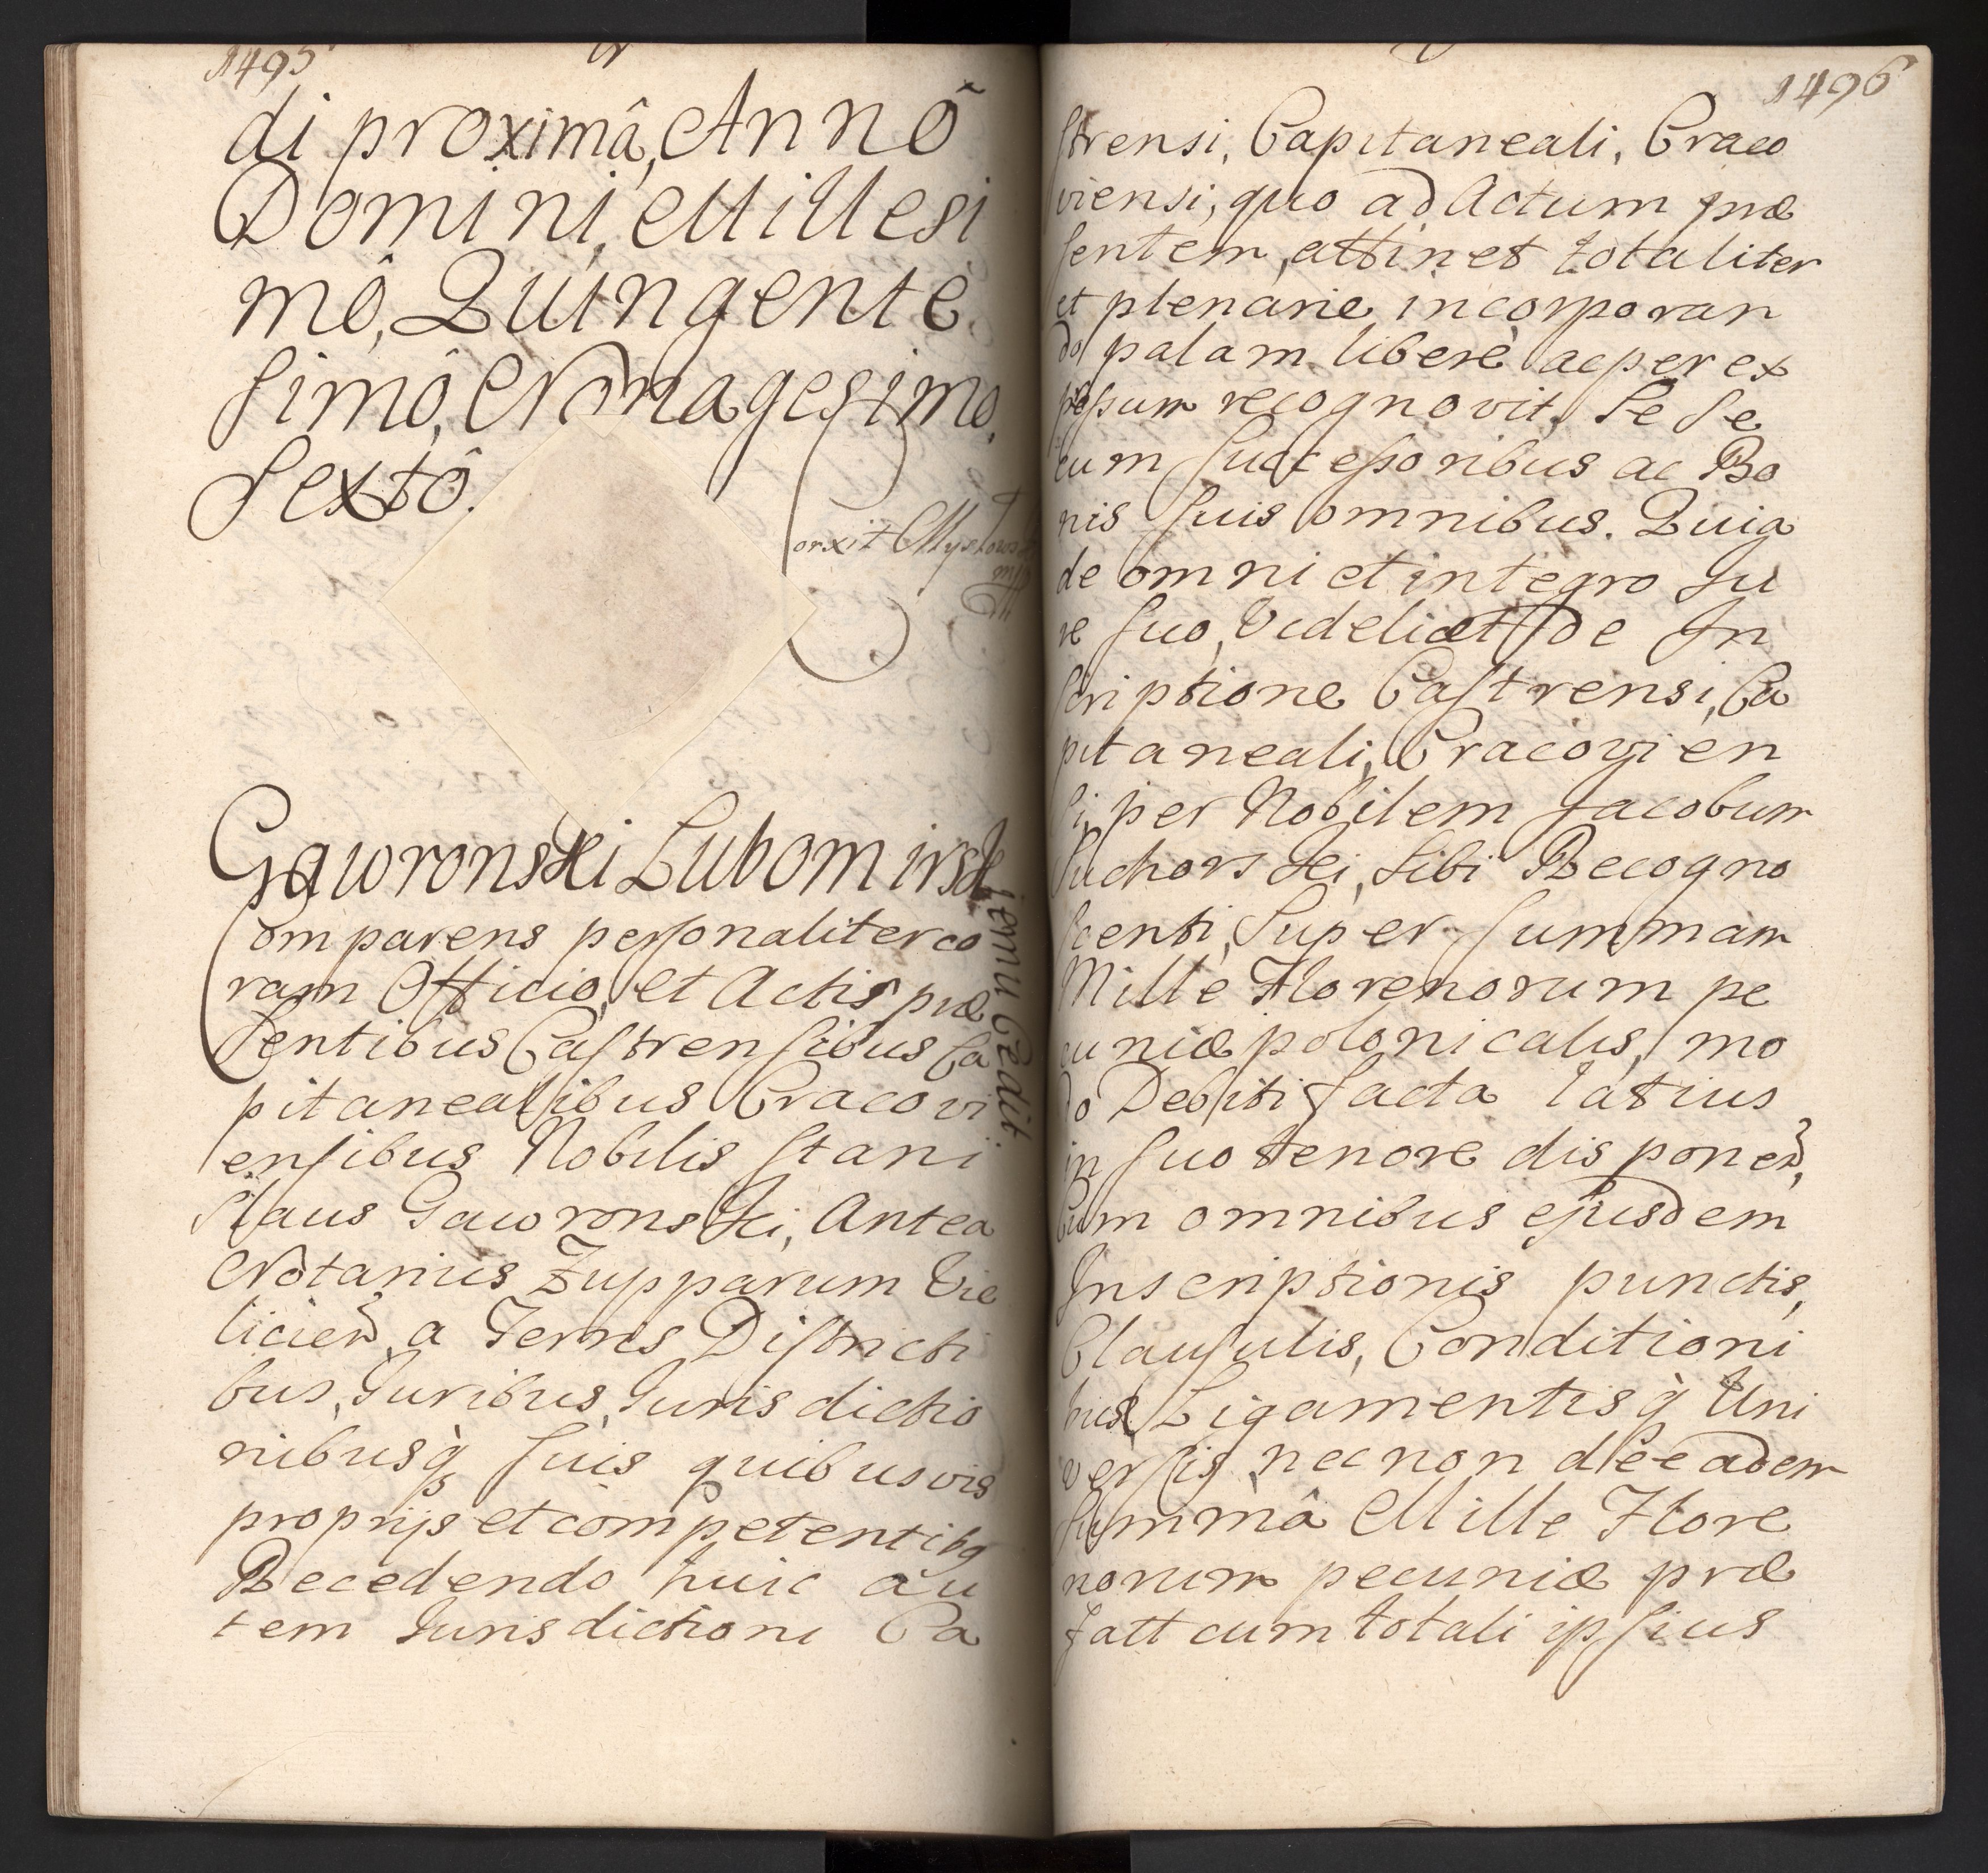 1495
di proximâ, Annô
Domini, Millesi
mô, Quingente
simô, Nonagesimo,
Sextô.
orxit Mysłows
Gawronski Lubomirsk
iemu Cedit
Comparens personaliter co
ram Officio, et Actis præ
sentibus Castrensibus Ca
pitanealibus Cracovi
ensibus Nobilis Stani
slaus Gawronski, Antea
Notarius Zupparum Vie
licień a Terris Districti
bus, Iuribus, Iurisdictio
nibusq̀ suis quibusvis
proprijs et competentibq
Recedendo huic au
tem Iurisdictioni Ca
1496
strensi, Capitaneali, Craco
viensi, quo ad Actum præ
sentem, attinet totaliter
et plenarie incorporan
do palam libere ac per ex
pressum recognovit, Se se
cum Successoribus ac Bo
nis suis omnibus. Quia
de omni et integro Iu
re suo, Videlicet de In
scriptione Castrensi, Ca
pitaneali, Cracovien
si, per Nobilem Jacobum
Suchorski, sibi Recogno
scenti, Super summam
Mille Florenorum pe
cuniæ polonicalis, mo
do Debiti facta latius
in suo tenore disponeń,
Cum omnibus ejusdem
Inscriptionis punctis,
Clausulis, Conditioni
bus Ligamentisq̀ Uni
versis necnon de eadem
Summâ Mille Flore
norum pecuniæ præ
fatt cum totali ipsius